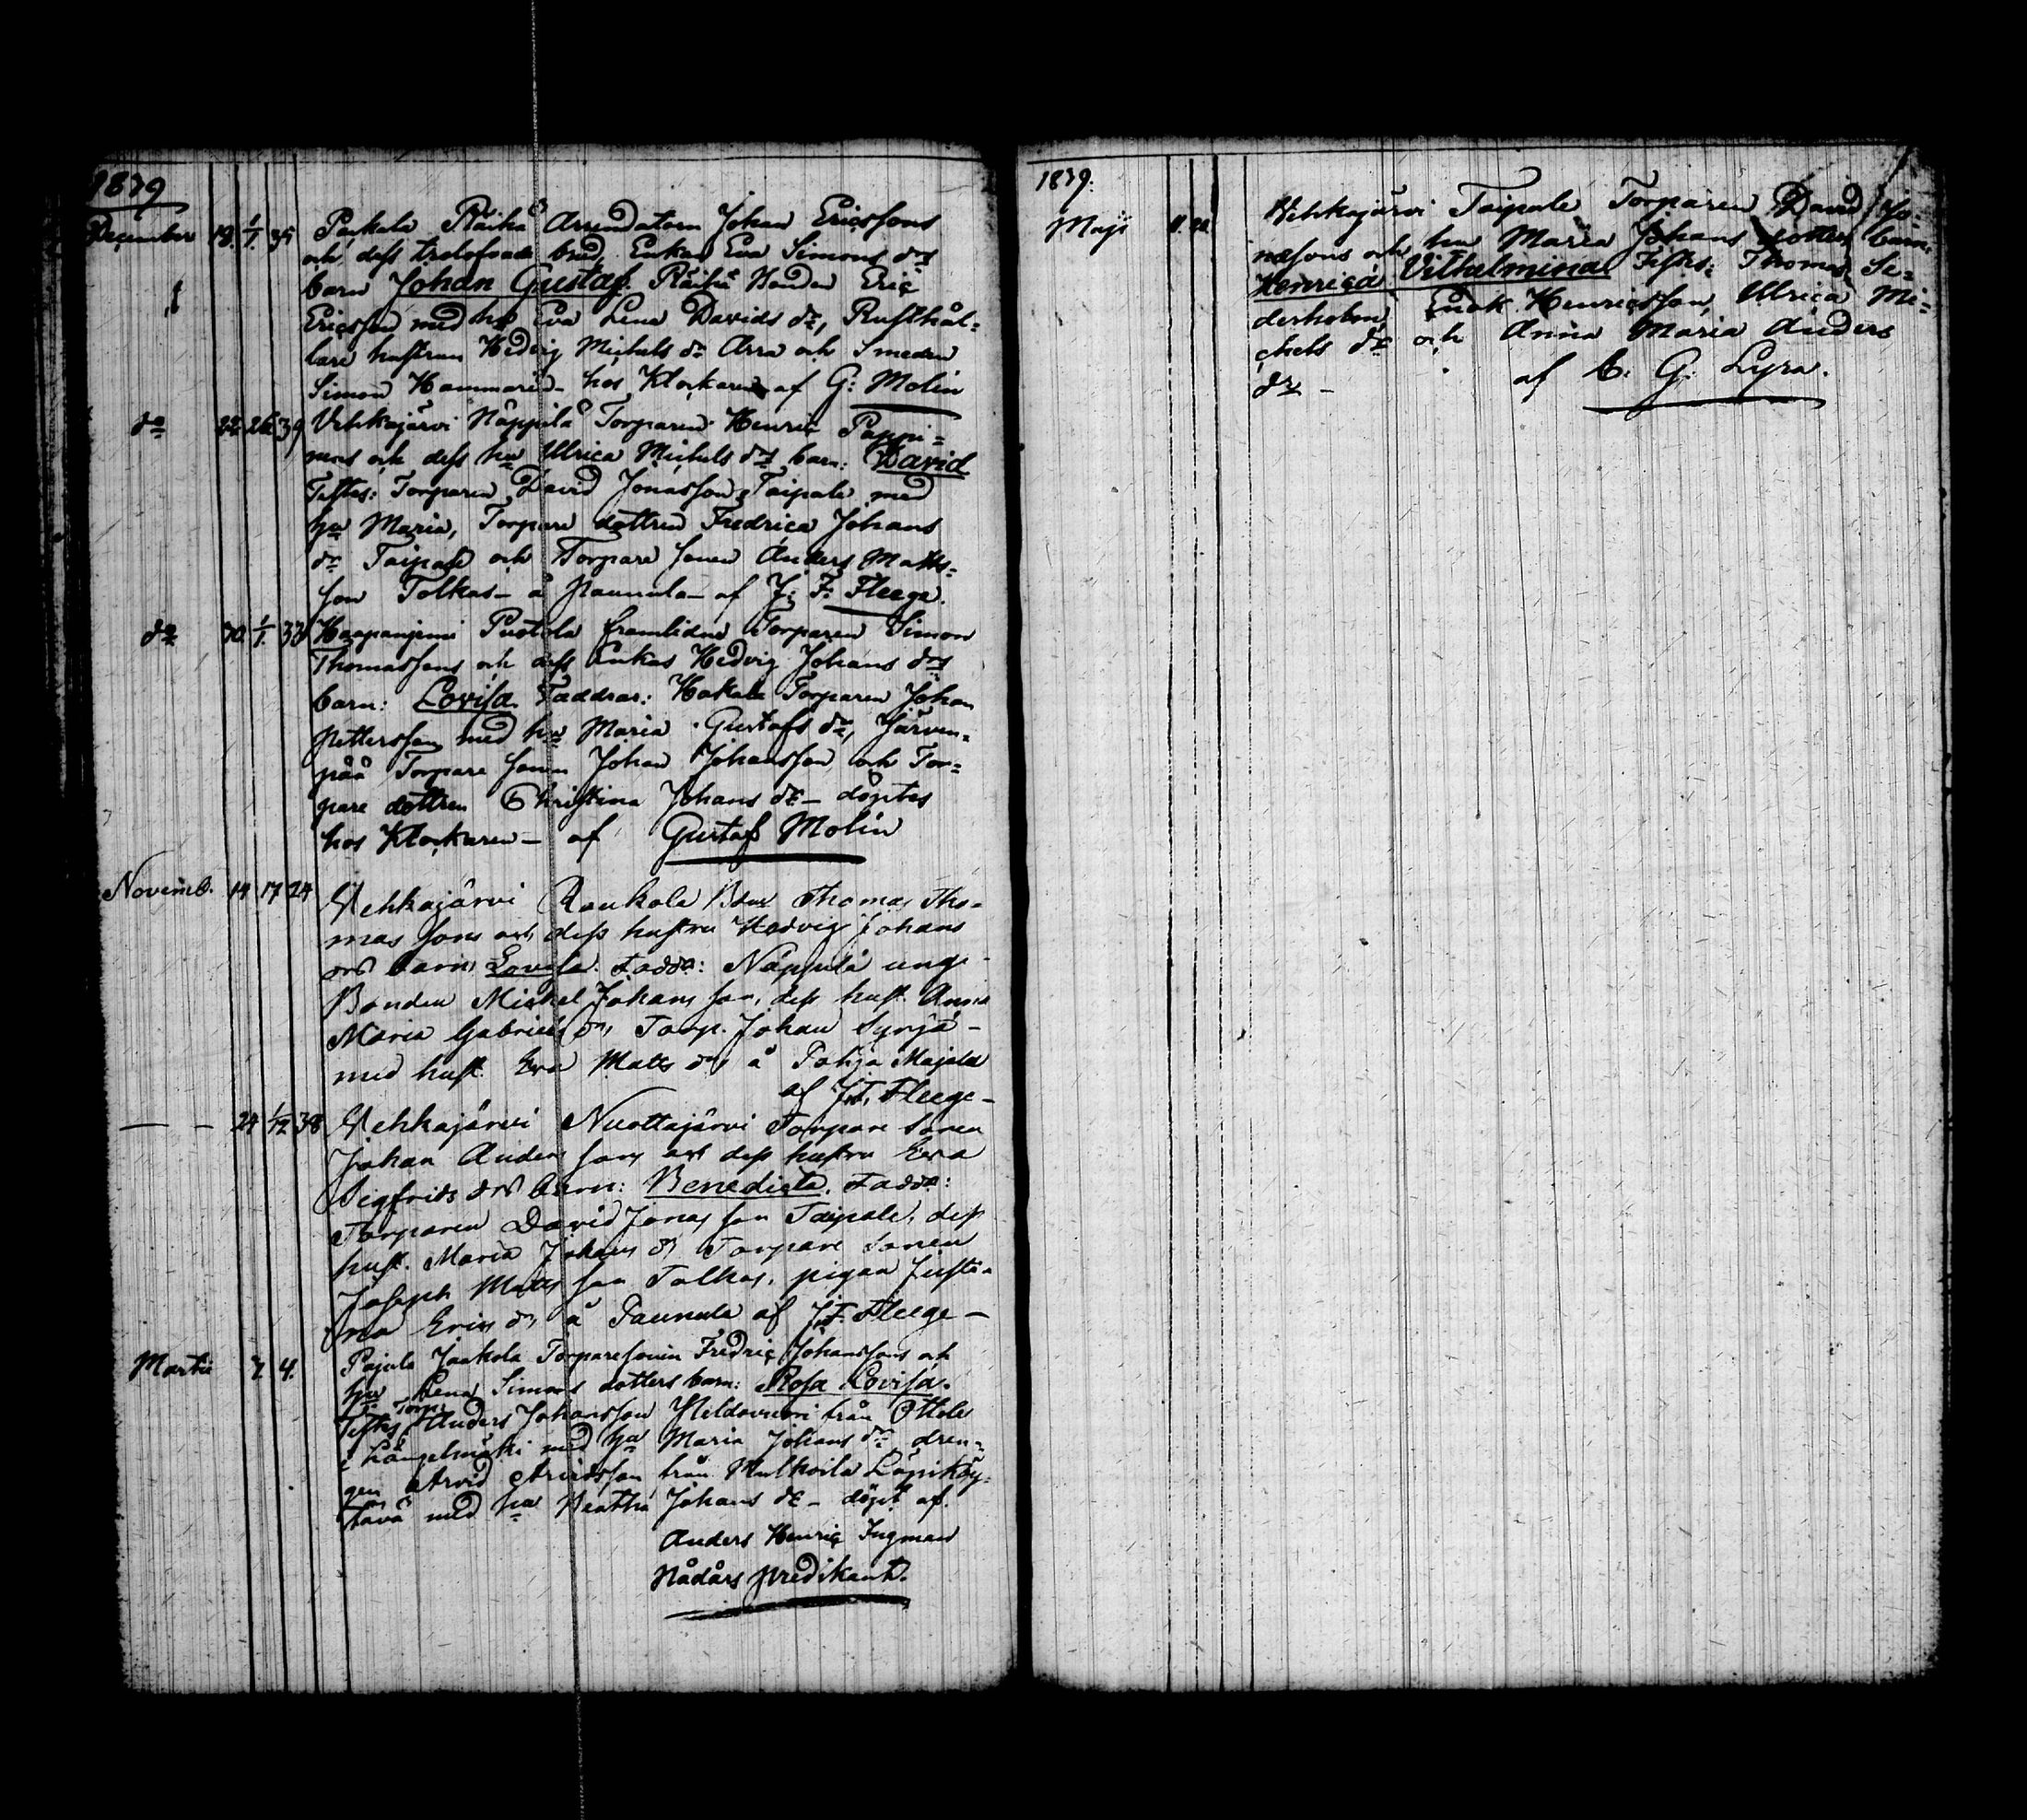 1839
December 19. 1/1. 35 Päckala Räihä Arrendatorn Johan Ericssons
och dess trolofvade brud, Enkan Eva Simons drs
barn Johan Gustaf. Räihä Bonden Eric
Ericsson med hu Eva Lena Davids dr, Rusthål-
lare hustrun Hedvig Michels dr Arra och Smeden
Simon Hammarén hos Klockaren af G: Molin
do 22 26 39 Vehkajärvi Näppilä Torparen Henric Pappi=
mas och dess hu Ulrica Michels drs barn: David
Testes: Torparen David Jonasson Taipale med
hu Maria, Torpare dottren Fredrica Johans
dr Taipale och Torpare sonen Anders Matts=
son Tolkas - å Paunula - af J: F: Fleege.
do 30 1/1. 33 Haapaniemi Puotola framlidne Torparen Simon
Thomassons och dess Enkas Hedvig Johans drs
barn: Lovisa. Faddrar: Hakala Torparen Johan
Pettersson med hu Maria Gustafs dr, Järven=
pää Torpare sonen Johan Johansson och Tor=
pare dottren Christina Johans dr - döptes
hos Klockaren - af Gustaf Molin
Novemb. 14 17 24 Vehkajärvi Raukola Bdn Thomas Tho-
mas sons och dess hustru Hedvig Johans
drs barn Lovisa. Fadd: Näppilä unge
Bonden Michel Johans son, dess hust. Anna
Maria Gabriels dr, Torp. Johan Syrjä -
med hust. Eva Matts dr å Pohja Majala
af J.F. Fleege -
— - 24 1/12 38 Vehkajärvi Nuottajärvi Torpare sonen
Johan Anders sons och dess hustru Eva
Sigfrids drs barn: Benedicta. Fadd:
Torparen David Jonas son Taipale, dess
hust. Maria Johans dr Torpare sonen
Joseph Matts son Tolkas, pigan Justi-
na Erics dr å Paunula af J.F. Fleege -
Martii 7. 4. Pajula Jaakola Torparesonen Fredric Johanssons och
hu Lena Simons dotters barn: Rosa Lovisa.
Torp:
Testes Anders Johansson Heldovuori från Ottola
i Längelmäki med hu Maria Johans dr dren=
gen Arvid Arvidsson från
med hu Johans dr - döpt af.
Anders Henric Ingman
Nådårs predikant.
1839.
Maji 11. 20. Vehkajärvi Taipale Torparen David Jo-
nassons och hu Maria Johans dotters barn:
Henrica Vilhelmina Testes: Thomas Se=
derholm, Enok Henricsson, Ulrica Mi=
chels dr och Anna Maria Anders
dr - af C. G. Lyra.